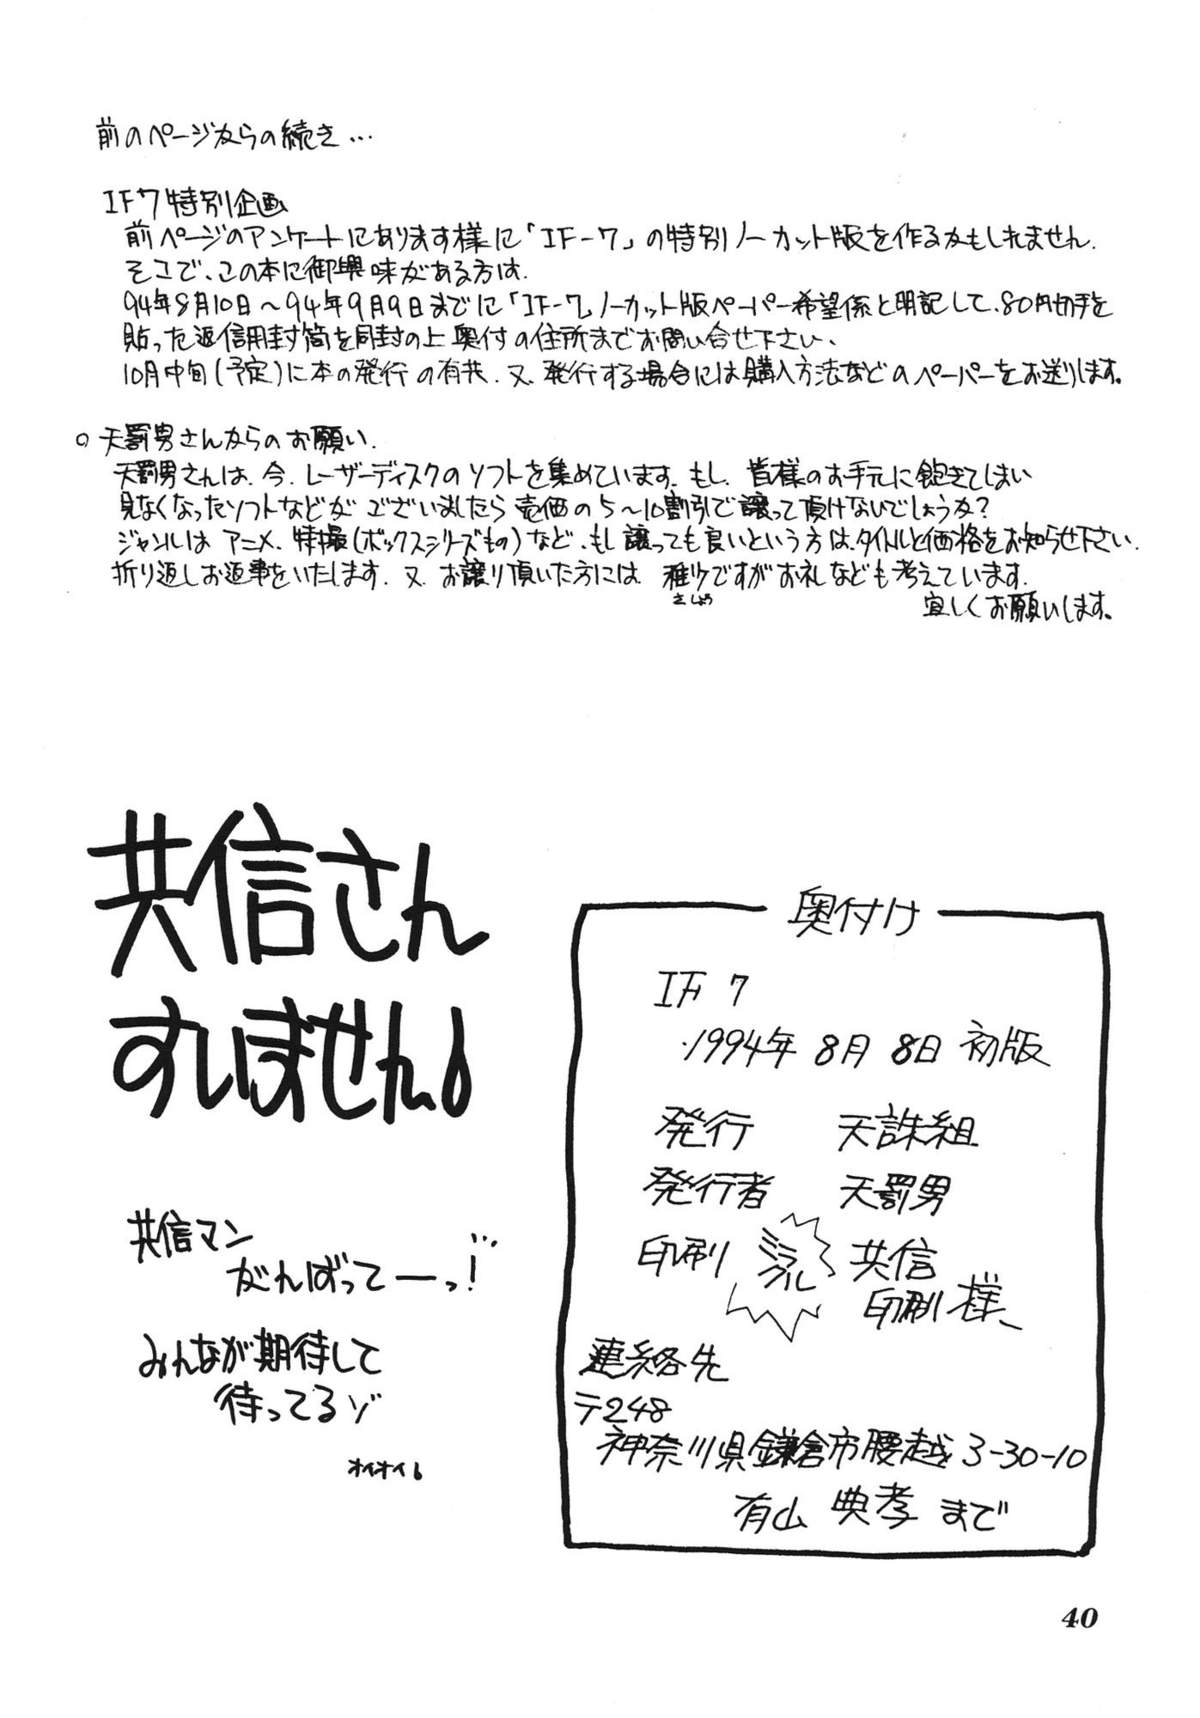 前のページからの続き…
IF7特別企画
前ページのアンケートにあります様に「IF-7」の特別ノーカット版を作るかもしれません.
そこで、この本に御興味がある方は.
94年8月10日～94年9月9日までに「IF-7」ノーカット版ペーパー希望係と明記して、80円切手を
貼った返信用封筒を同封の上奥付の住所までお問い合せ下さい、
10月中旬(予定)に本の発行の有共、又、発行する場合には購入方法などのペーパーをお送りします。
○天罰男さんからのお願い.
天罰男さんは、今、レーザーディスクのソフトを集めています。もし、皆様のお手元に飽きてしまい
見なくなったソフトなどがございましたら壱価の5～10割引で譲って頂けないでしょうか?
ジャンルはアニメ、特撮(ボックスシリーズもの)など、もし譲っても良いという方は、タイトルと価格をお知らせ下さい.
折り返しお返事をいたします.又、お譲り頂いた方には、稚少ですがお礼なども考えています.
さしょう
宜しくお願いします。
共信さん
すいません。
共信マン
がんばってーっ!
みんなが期待して
待ってるゾ
オイオイ。
奥付け
IF 7
1994年 8月 8日 初版
発行 天誅組
発行者 天罰男
印刷 ミラクル 共信
印刷 様、
連絡先
〒248
神奈川県鎌倉市腰越3-30-10
有山 典孝 まで
40